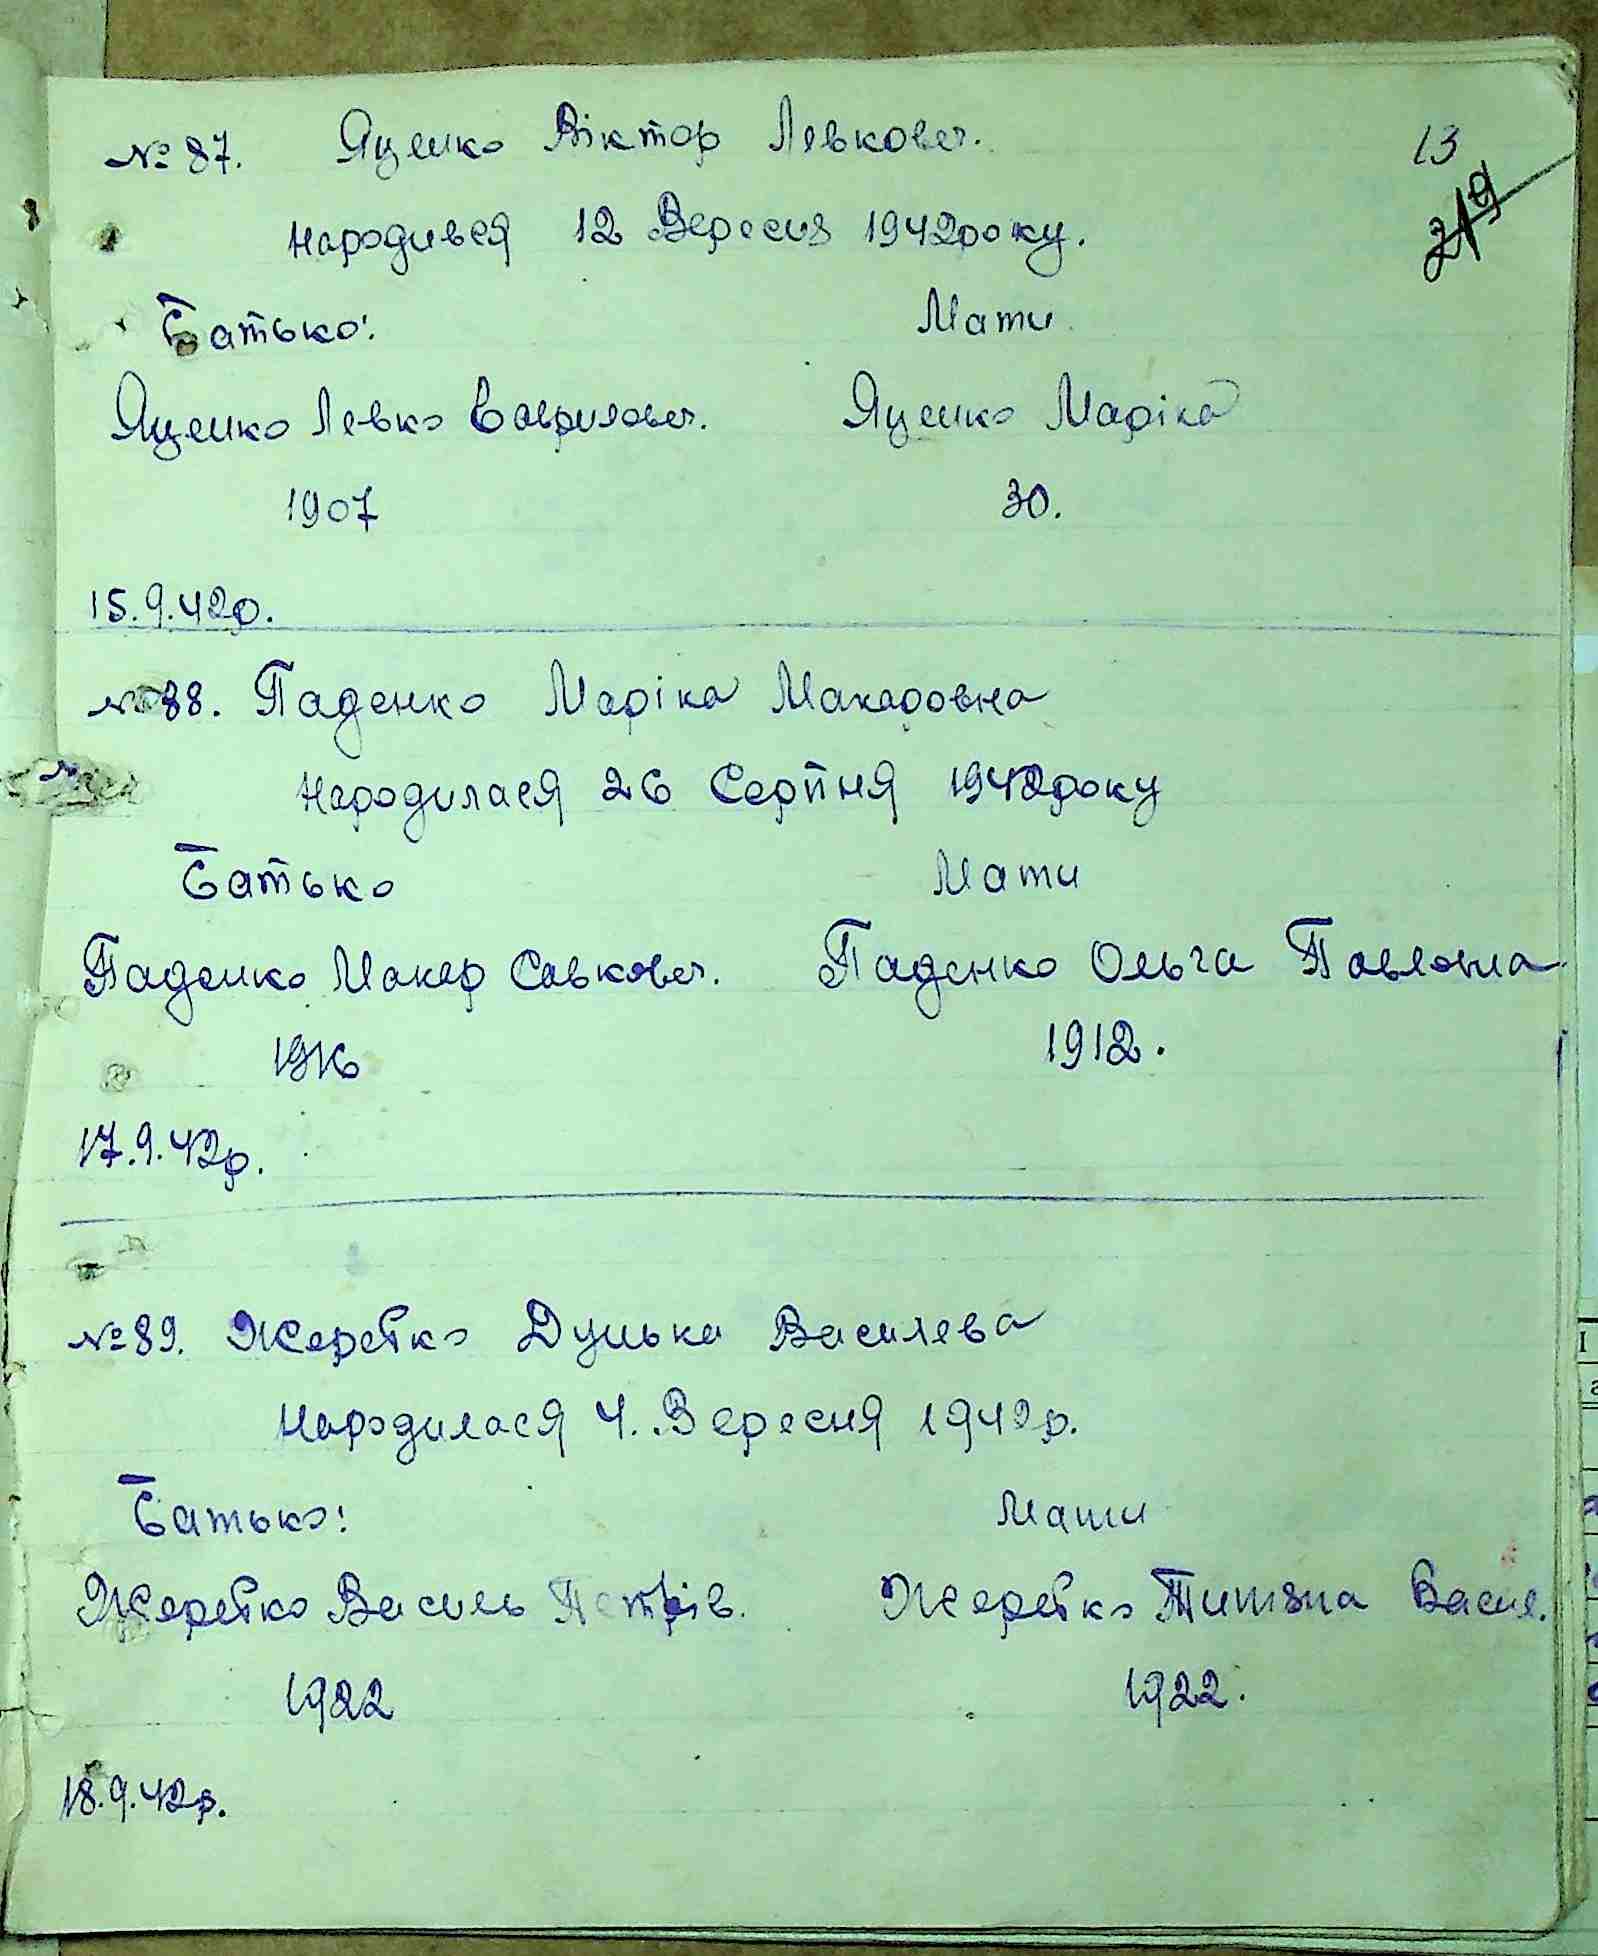 13
219
№ 87. Яценко Віктор Левкович.
народився 12 Вересня 1942року.
Батько: Мати
Яценко Левко Гаврилович. Яценко Маріка
1907 30.
15.9.42р.
№ 88. Паденко Маріка Макаровна
народилася 26 Серпня 1942року
Батько Мати
Паденко Макар Савкович. Паденко Ольга Павловна
1916 1912.
17.9.42р.
№ 89. Жеребко Дунька Василева
народилася 4. Вересня 1942р.
Батько: Мати
Жеребко Василь Петрів. Жеребко Титяна Васил.
1922 1922.
18.9.42р.